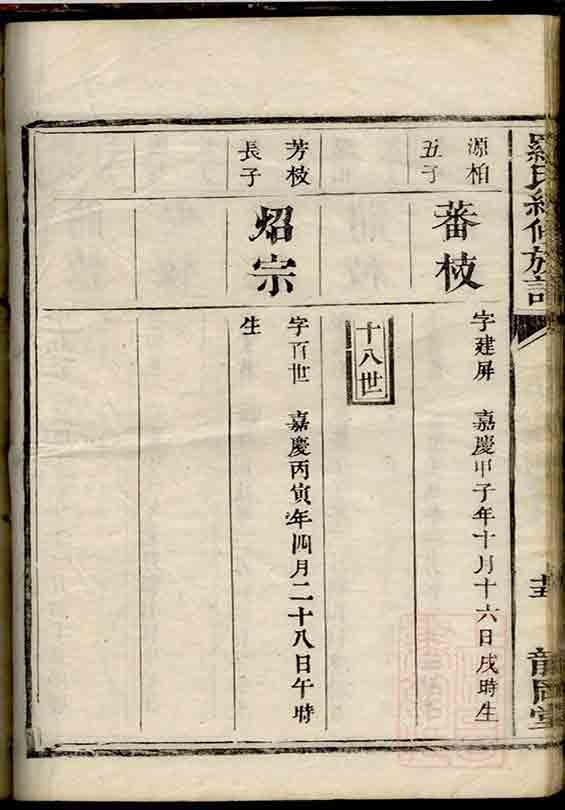 羅氏續修族譜
龍岡堂
源柏
五子
蕃枝
字建屏 嘉慶甲子年十月十六日戌時生
十八世
芳枝
長子
炤宗
字百世 嘉慶丙寅年四月二十八日午時
生